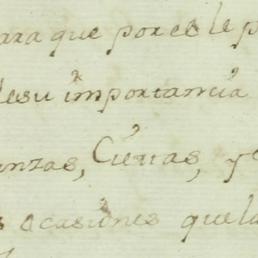 ara que por es le p
desu importancia
anzas, Cienias, y
s ocasiones que la